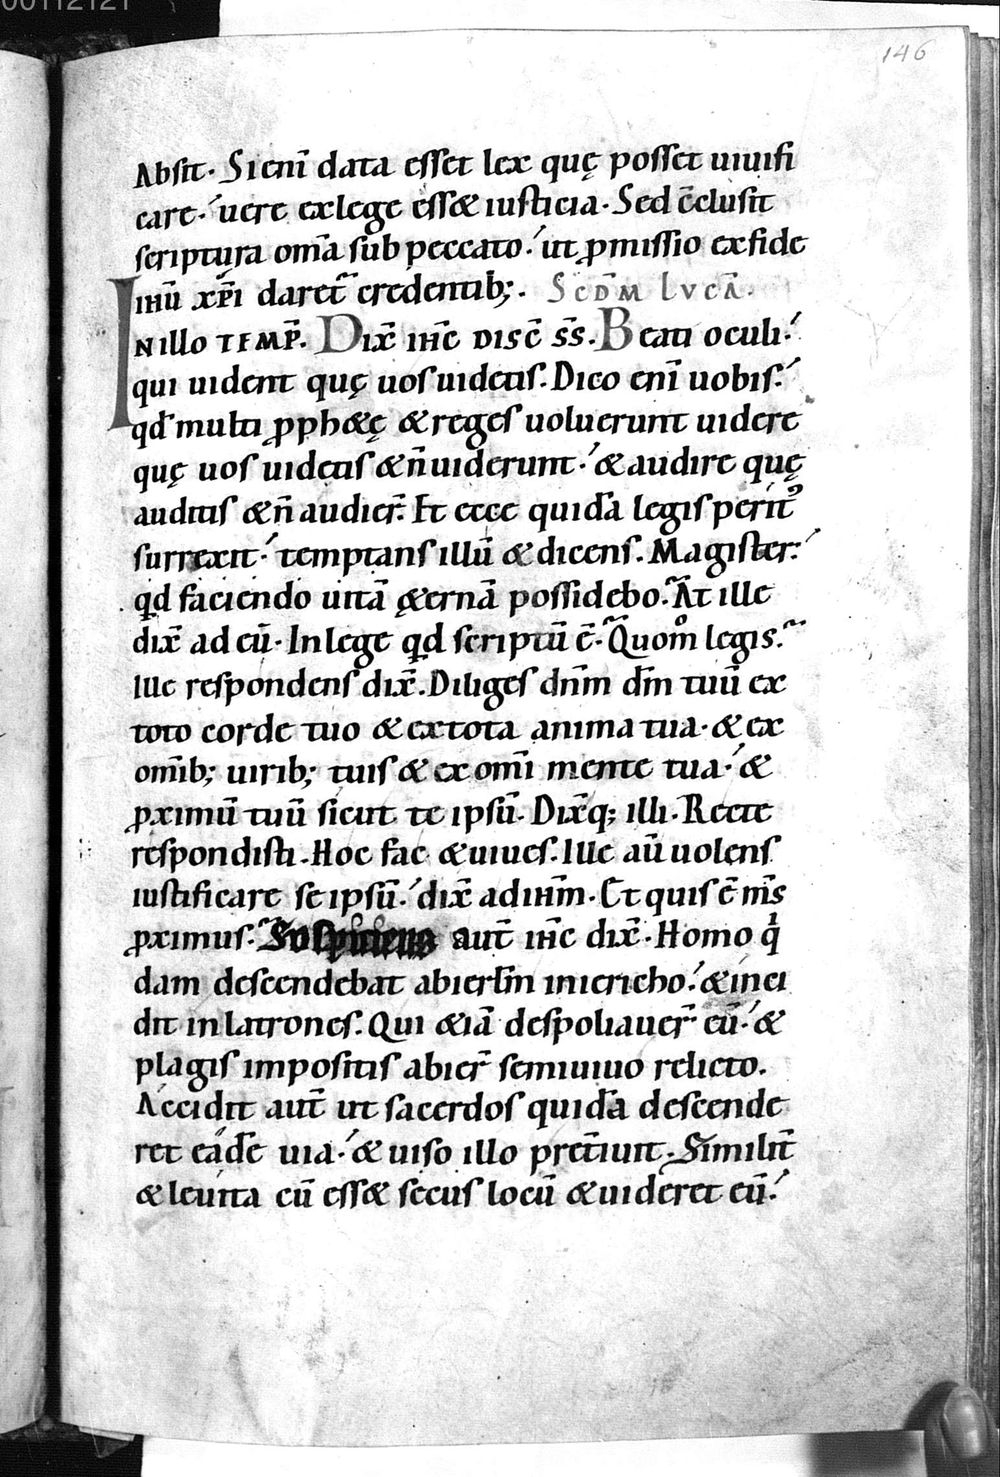 00112121
146
Absit. Si eni̅ data esset lex quę posset uiuifi
care. uere ex lege ess& iusticia. Sed c̅clusit
scriptura om̅a sub peccato. ut p̲missio ex fide
ihu̅ xp̅i daret̅ credentib;. Scd̅m Luca̅.
In illo temp̅. Dix̅ ih̅c disc̅ s̅s. Beati oculi.
qui uident quę uos uidetis. Dico eni̅ uobis.
qd̅ multi p̲ph&ę & reges uoluerunt uidere
quę uos uidetis & n̅ uiderunt. & audire quę
auditis & n̅ audier̅. Et ecce quida̅ legis perit᾽
surrexit. temptans illu̅ & dicens. Magister.
qd faciendo uita̅ ę&erna̅ possidebo. At ille
dix̅ ad eu̅. In lege qd scriptu̅ e̅. Quom̊ legis.
Ille respondens dix̅. Diliges dn̅m dm̅ tuu̅ ex
toto corde tuo & ex tota anima tua. & ex
omi̅b; uirib; tuis & ex omi̅ mente tua. &
p̲ximu̅ tuu̅ sicut te ipsu̅. Dix̅q; illi. Recte
respondisti. Hoc fac & uiues. Ille au̅ uolens
iustificare se ipsu̅. dix̅ ad ihm̅. Et quis e̅ m̅s
p̲ximus. Suspiciens aut̅ ih̅c dix̅. Homo qⁱ
dam descendebat abierl̅m in iericho. & inci
dit in latrones. Qui &ia̅ despoliauer̅ eu̅. &
plagis impositis abier̅ semiuiuo relicto.
Accidit aut̅ ut sacerdos quida̅ descende
ret eade̅ uia. & uiso illo pret̅iuit. Similit̅
& leuita cu̅ ess& secus locu̅ & uideret eu̅.